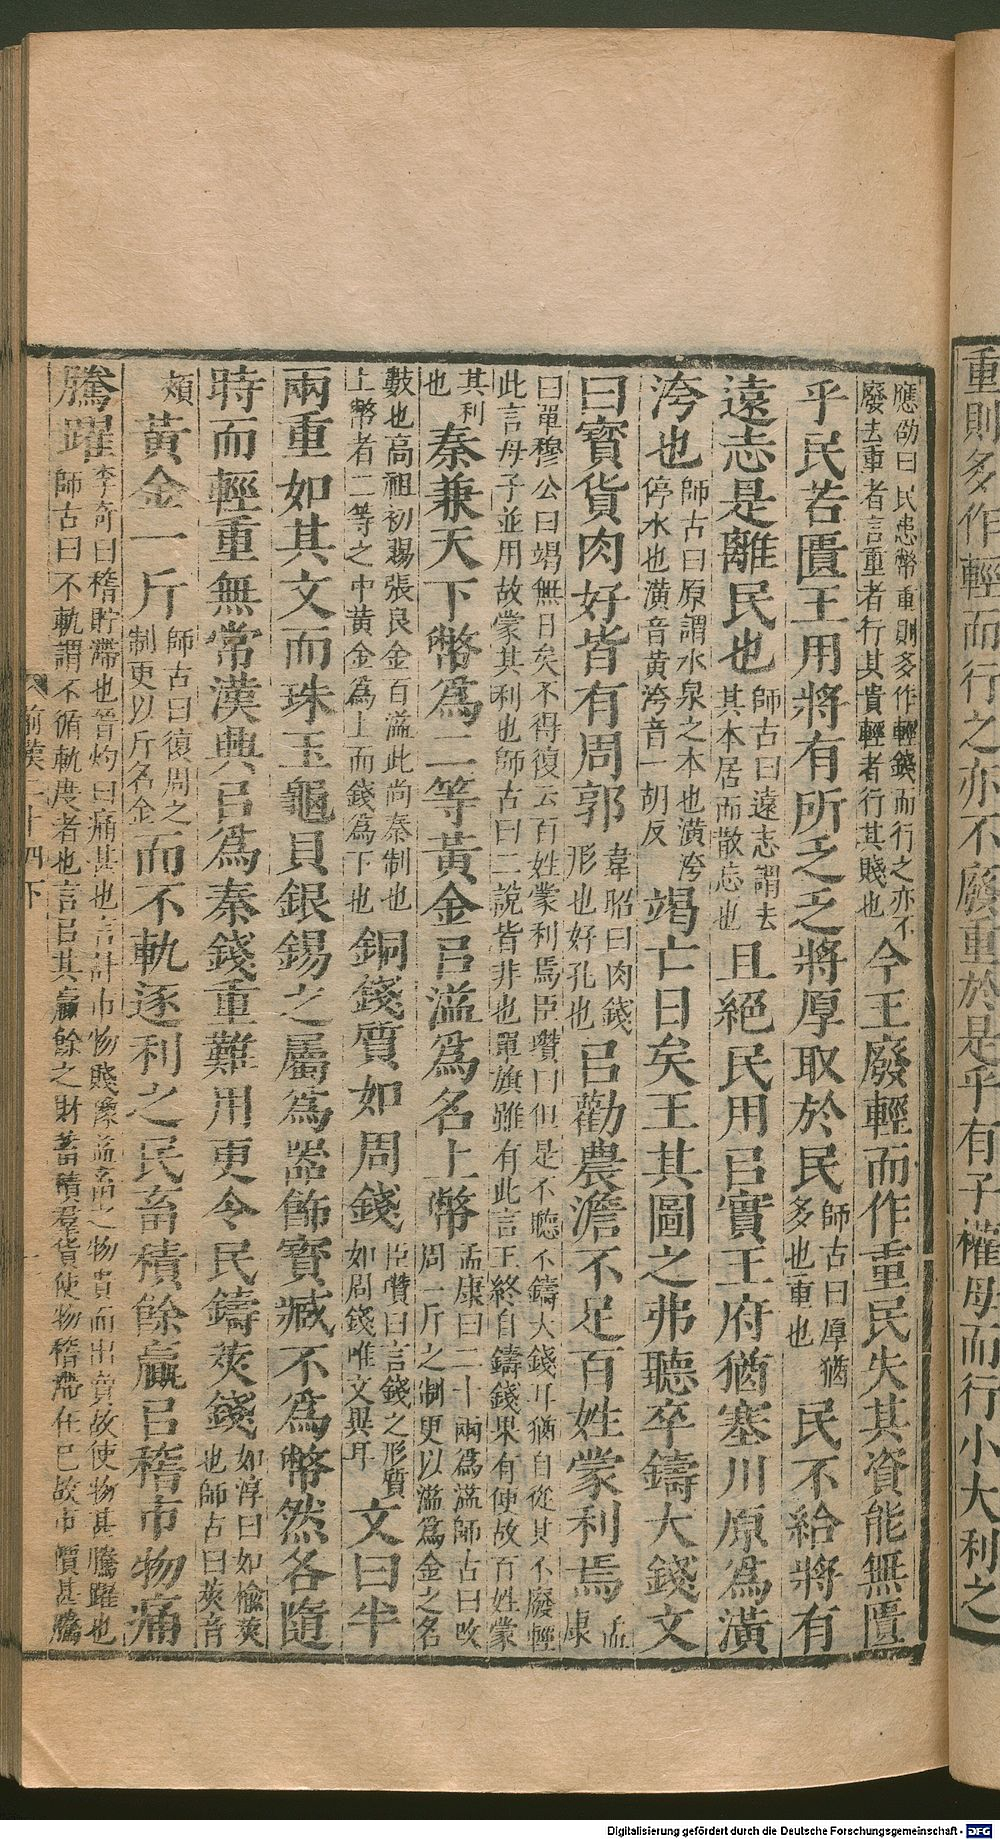 重則多作輕而行之亦不廢重於是乎有子權母而行小大利之
應劭曰民患幣重則多作輕錢而行之亦不
廢去重者言重者行其貴輕者行其賤也
今王廢輕而作重民失其資能無匱
乎民若匱王用將有所乏乏將厚取於民
師古曰厚猶
多也重也
民不給將有
遠志是離民也
師古曰遠志謂去
其本居而散忘也
且絕民用㠯實王府猶塞川原爲潢
洿也
師古曰原謂水泉之本也潢洿
停水也潢音黃洿音一胡反
竭亡日矣王其圖之弗聽卒鑄大錢文
曰寶貨肉好皆有周郭
韋昭曰肉錢
形也好孔也
㠯勸農澹不足百姓蒙利焉
孟
康
曰單穆公曰竭無日矣不得復云百姓蒙利焉臣瓚曰但是不聽不鑄大錢耳猶自從其不廢輕
此言母子並用故蒙其利也師古曰二說皆非也單旗雖有此言王終自鑄錢果有便故百姓蒙
其利
也
秦兼天下幣爲二等黃金㠯溢爲名上幣
孟康曰二十兩爲溢師古曰改
周一斤之制更以溢爲金之名
數也高祖初賜張良金百溢此尚秦制也
上幣者二等之中黃金爲上而錢爲下也
銅錢質如周錢
臣瓚曰言錢之形質
如周錢唯文異耳
文曰半
兩重如其文而珠玉龜貝銀錫之屬爲器飾寶臧不爲幣然各隨
時而輕重無常漢興㠯爲秦錢重難用更令民鑄莢錢
如淳曰如榆莢
也師古曰莢音
頰
黃金一斤
師古曰復周之
制更以斤名金
而不軌逐利之民畜積餘贏㠯稽市物痛
騰躍
李奇曰稽貯滯也晉灼曰痛甚也言計市物賤豫益畜之物貴而出賣故使物甚騰躍也
師古曰不軌謂不循軌度者也言㠯其贏餘之財蓄積羣貨使物稽滯在已故市價甚騰
前漢二十四下
Digitalisierung gefördert durch die Deutsche Forschungsgemeinschaft - DFG